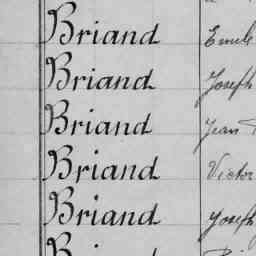 Briand Emile
Briand Joseph
Briand Jean
Briand Victor
Briand Joseph